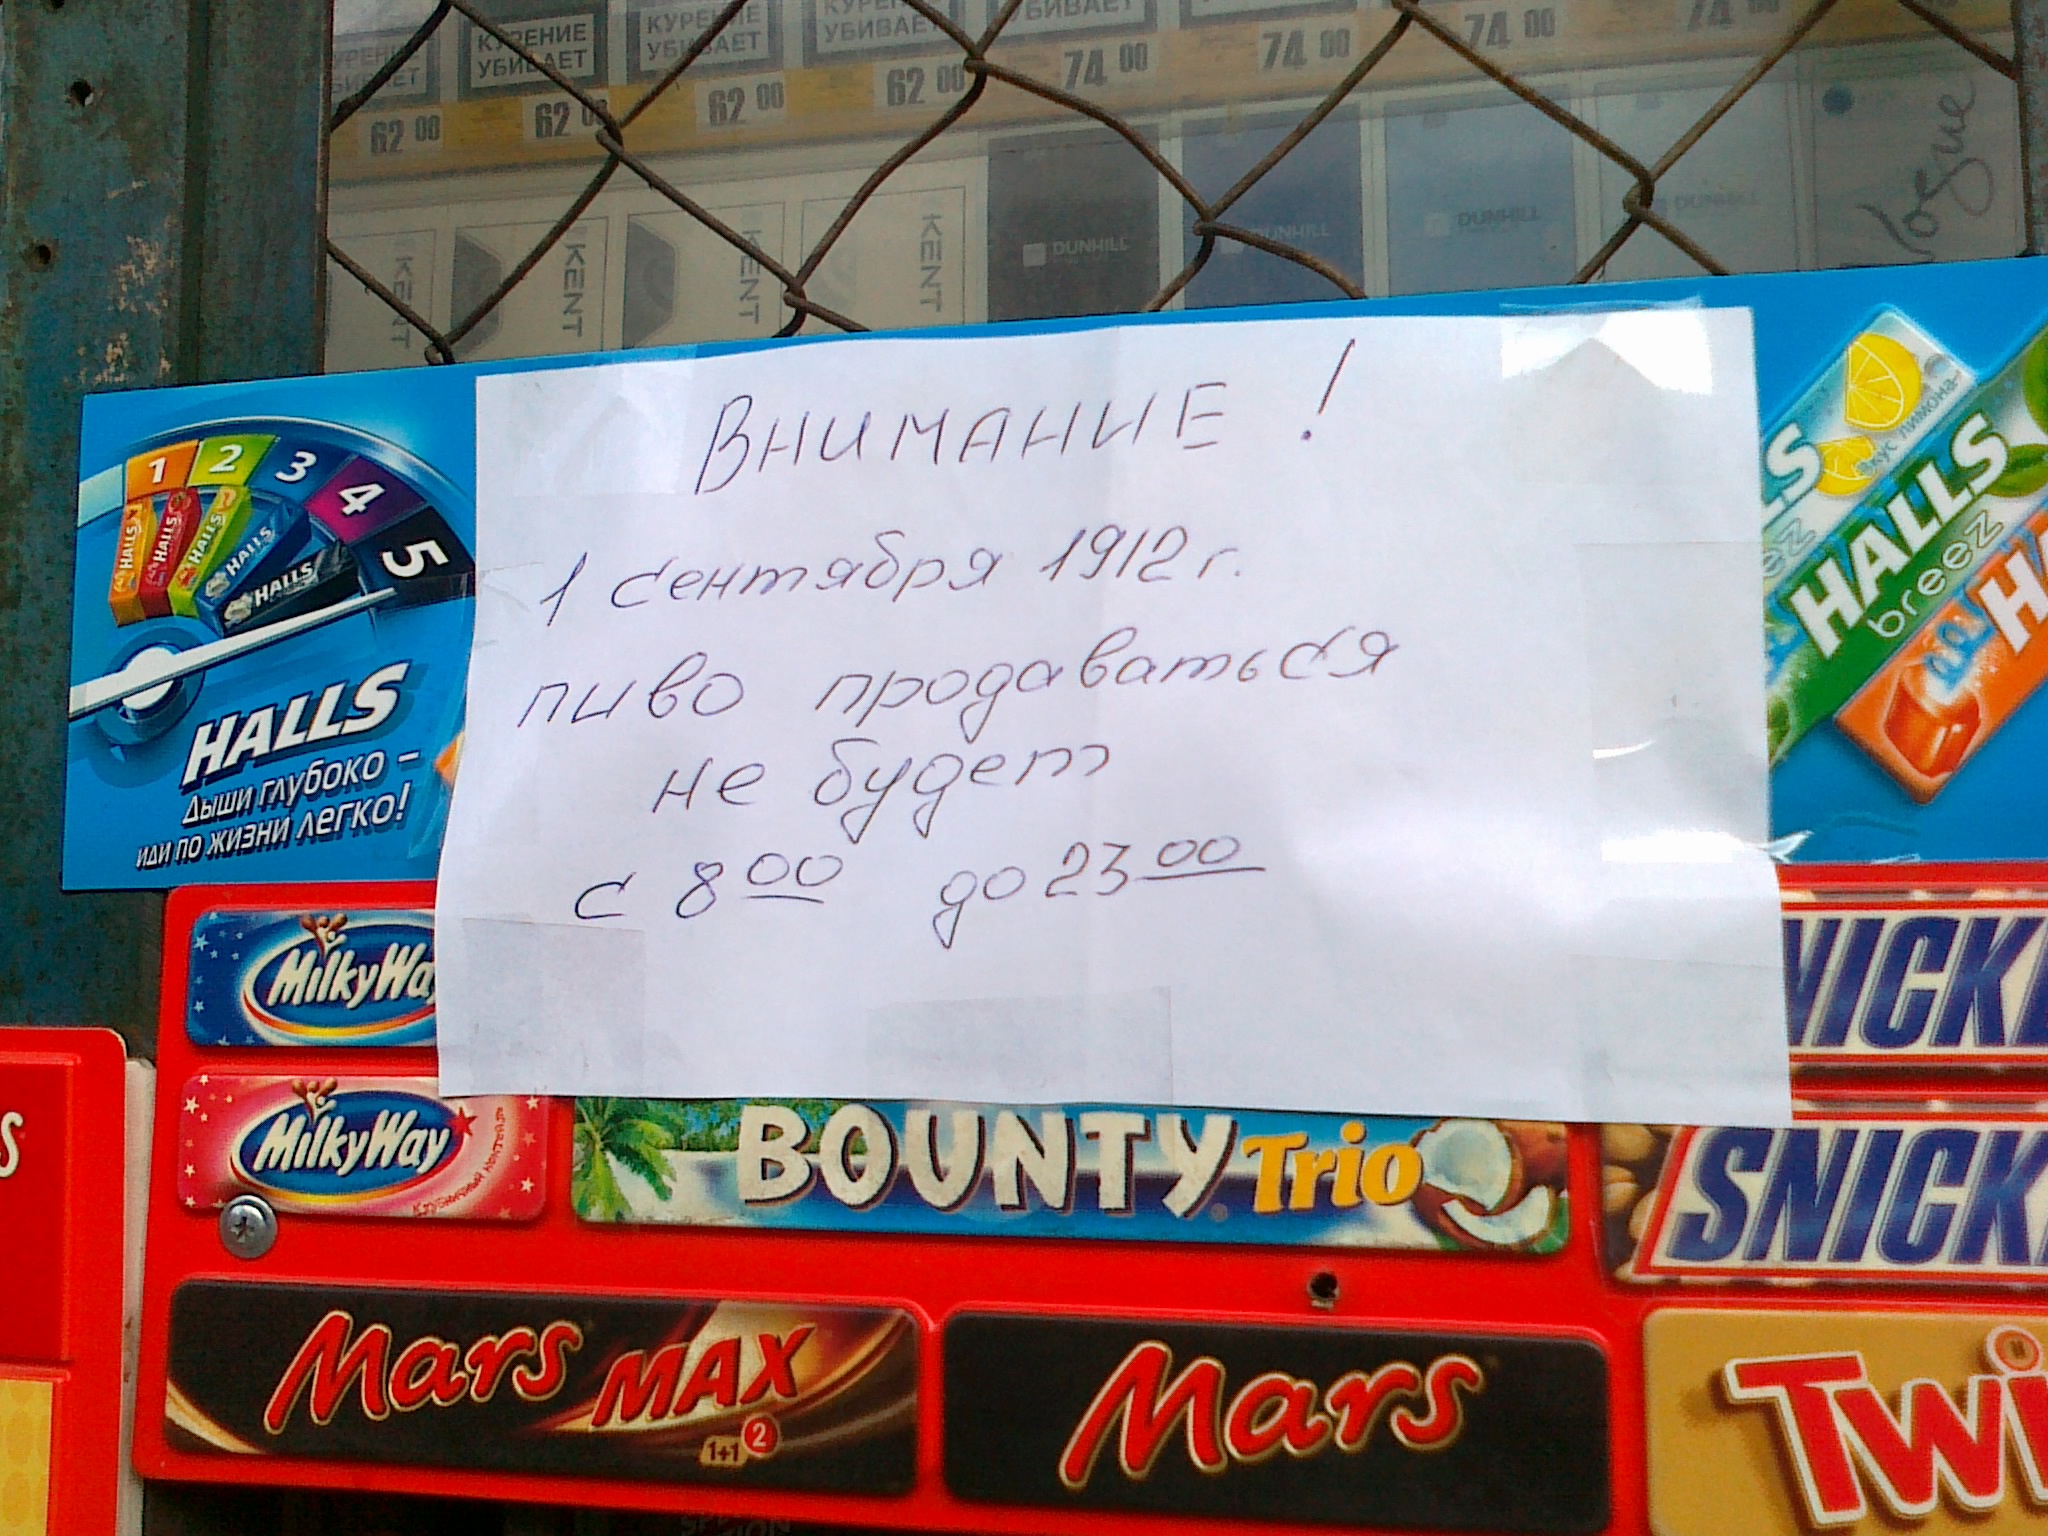 КУРЕНИЕ
УБИВАЕТ
КУРЕНИЕ
УБИВАЕТ
КУРЕНИЕ
УБИВАЕТ
УБИВАЕТ
УБИВАЕТ
62 00
62 00
62 00
62 00
74 00
74 00
74 00
74 00
KENT
KENT
KENT
KENT
DUNHILL
DUNHILL
DUNHILL
DUNHILL
Vogue
ВНИМАНИЕ!
1 сентября 1912 г.
пиво продаваться
не будет
с 8 00 до 23 00
1 2 3 4 5
HALLS
HALLS
HALLS
HALLS
HALLS
HALLS
Дыши глубоко –
иди по жизни легко!
вкус лимона-
LS
ez
HALLS
breez
HA
MilkyWa
NICK
MilkyWay
BOUNTY Trio
SNICK
s
Mars MAX
1+1 2
Mars
Twi